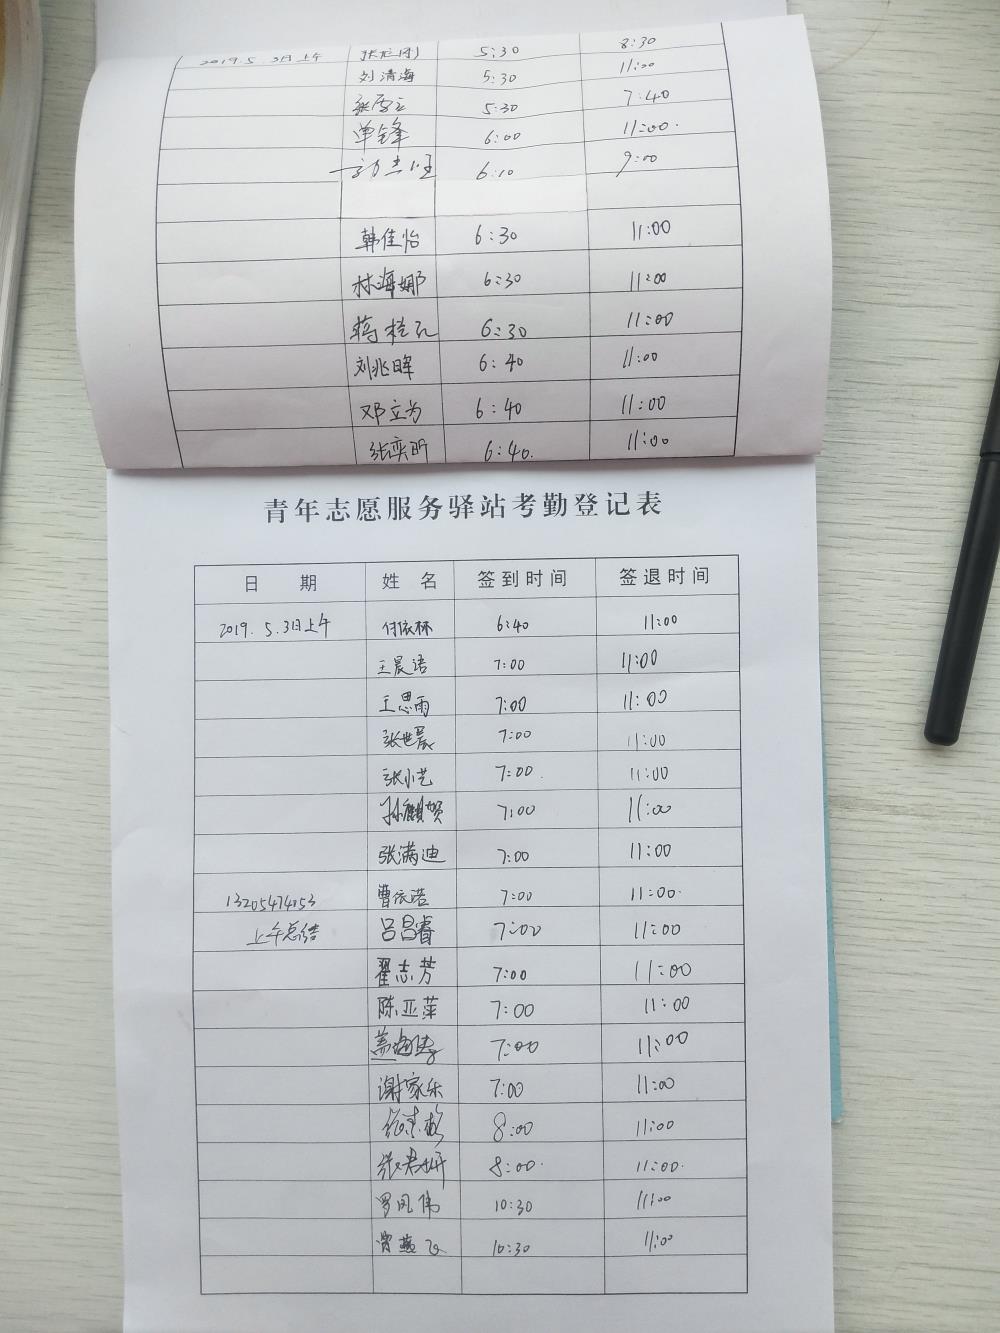 2019.5.3日上午 5:30 8:30
刘清海 5:30 11:00
5:30 7:40
单锋 6:00 11:00.
6:10 9:00
韩佳怡 6:30 11:00
林海娜 6:30 11:00
蒋桂 6:30 11:00
刘兆晖 6:40 11:00
邓立为 6:40 11:00
张奕昕 6:40. 11:00
青年志愿服务驿站考勤登记表
日 期 姓 名 签到时间 签退时间
2019.5.3日上午 付依林 6:40 11:00
王晨语 7:00 11:00
王思雨 7:00 11:00
张世晨 7:00 11:00
张小艺 7:00. 11:00
孙 贺 7:00 11:00
张满迪 7:00 11:00
13205474053 曹依诺 7:00 11:00.
上午总结 吕昌睿 7:00 11:00
翟志芳 7:00 11:00
陈亚萍 7:00 11:00
7:00 11:00
谢家乐 7:00 11:00
8:00 11:00
张君妍 8:00. 11:00.
罗凤伟 10:30 11:00
曾燕飞 10:30 11:00